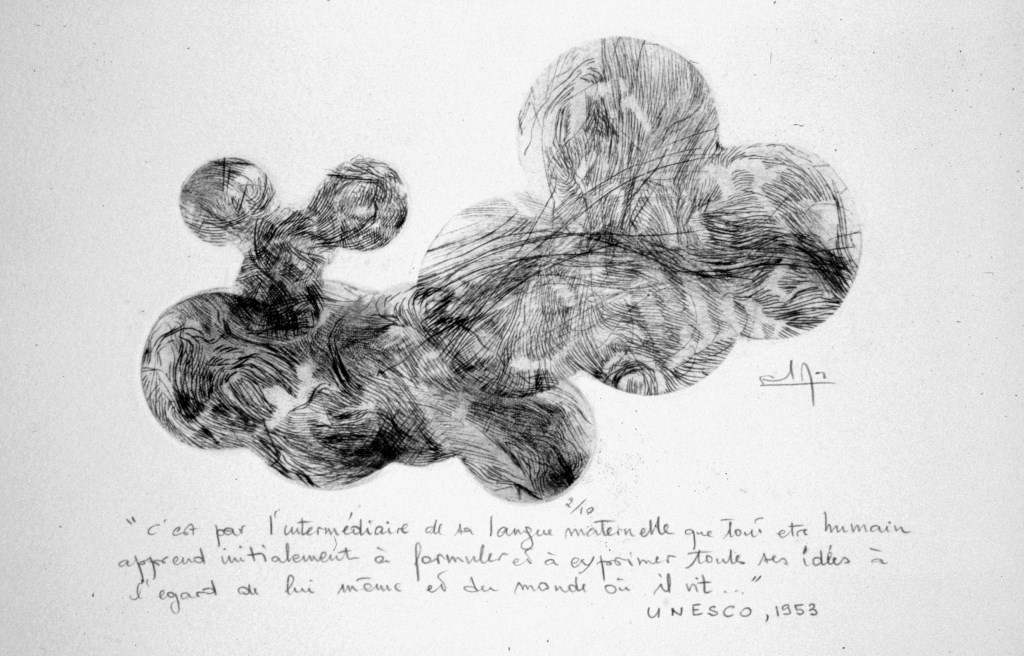 2/10
"c'est par l'intermédiaire de sa langue maternelle que tout etre humain
apprend initialement à formuler et à exprimer toute ses idées à
l'egard de lui même et du monde où il vit..."
UNESCO, 1953